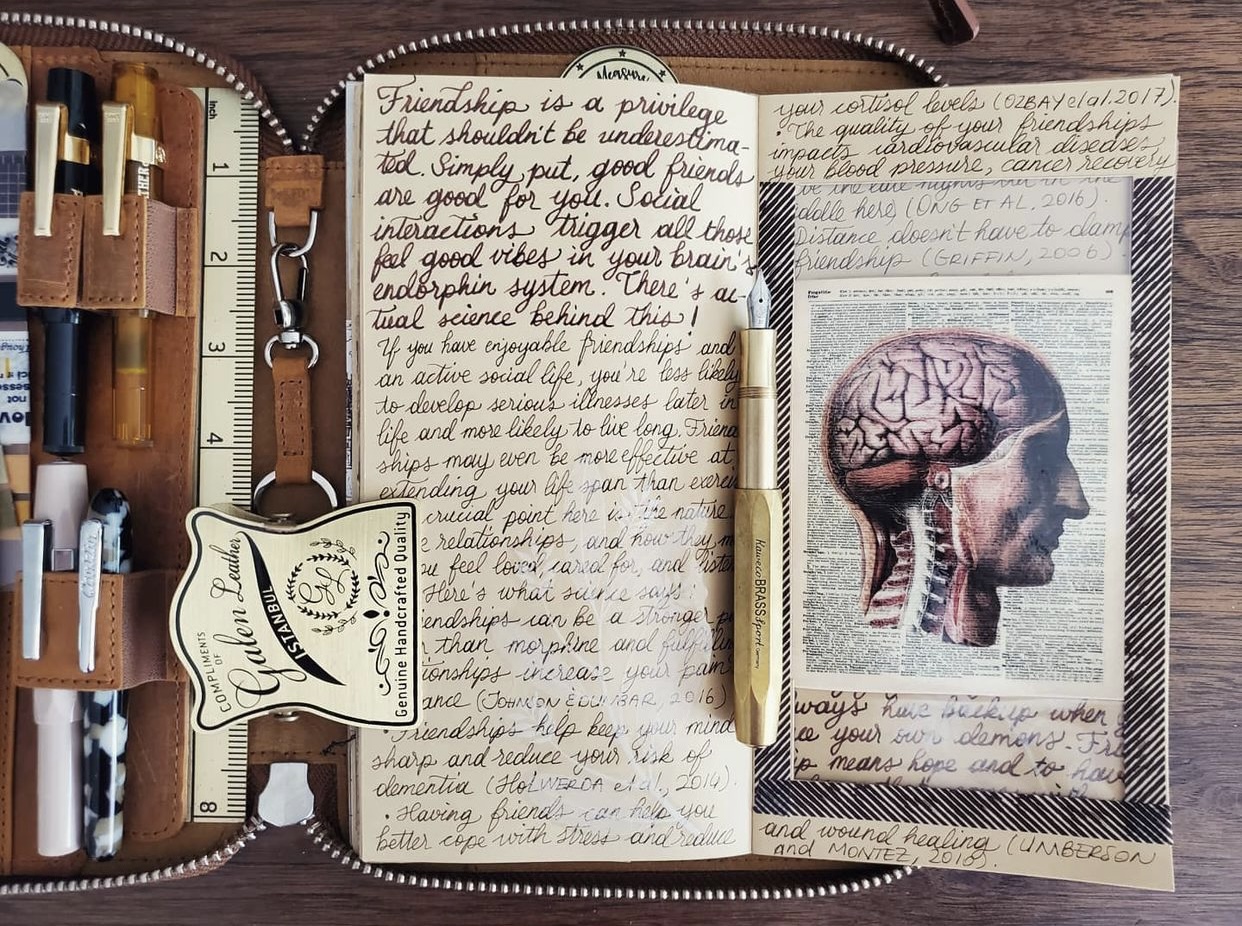 Measure
Friendship is a privilege
that shouldn't be underestima-
ted. Simply put, good friends
are good for you. Social
interactions trigger all those
feel good vibes in your brain's
endorphin system. There's ac-
tual science behind this!
If you have enjoyable friendships and
an active social life, you're less likely
to develop serious illnesses later in
life and more likely to live long. Friend
ships may even be more effective at
extending your life span than
crucial point here is the nature
relationships, and how they
feel loved, cared for, and
Here's what science says:
endships can be a stronger
than morphine and
tionships increase your pain
ance (JOHNSON & DUNBAR, 2016)
· Friendships help keep your mind
sharp and reduce your risk of
dementia (HOLWERDA et al., 2014).
· Having friends can help you
better cope with stress and reduce
your cortisol levels (OZBAY et al. 2017).
· The quality of your friendships
impacts cardiovascular diseases,
your blood pressure, cancer recovery
ddle here) (ONG ET AL. 2016).
Distance doesn't have to damp
friendship (GRIFFIN, 2006).
ways have backup when
your own demons. Fri
means hope and to have
and wound healing (UMBERSON
and MONTEZ, 2010).
Kaweco BRASS Sport Germany
COMPLIMENTS
OF
Galen Leather
ISTANBUL
GL
Genuine Handcrafted Quality
Inch
1
2
3
4
8